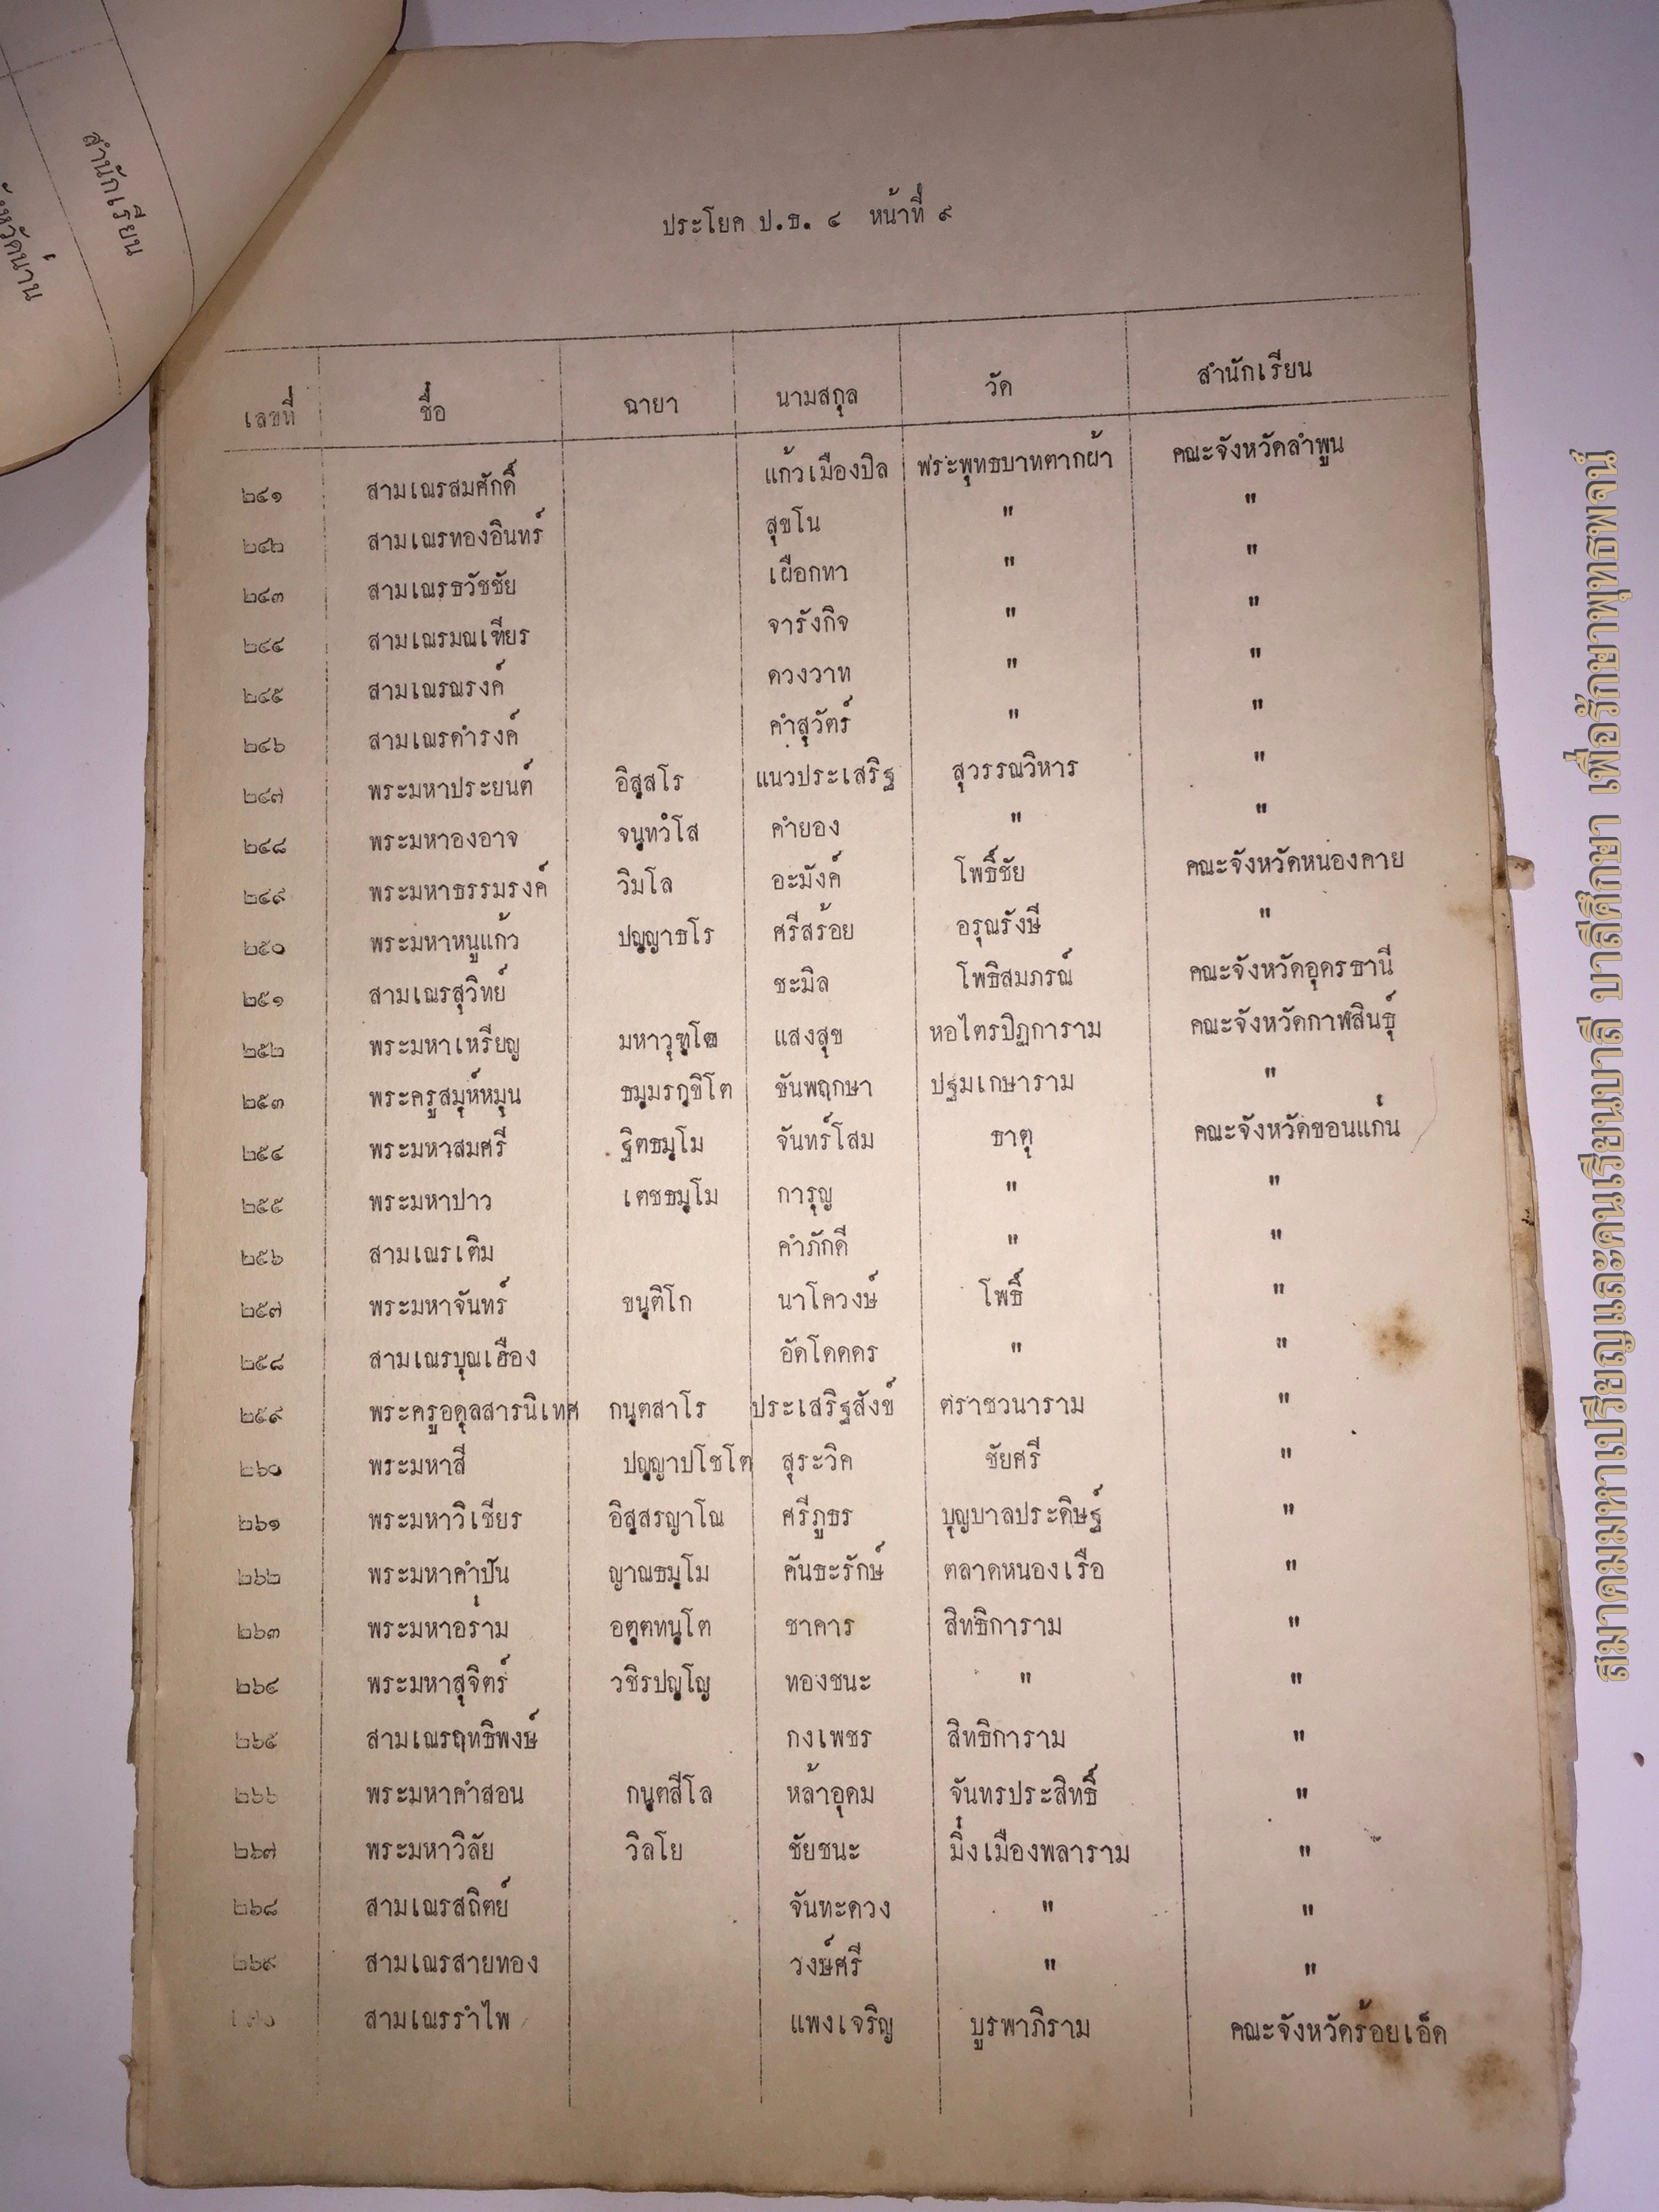 สำนักเรียน
ประโยค ป.ธ. ๔ หน้าที่ ๙
เลขที่ ชื่อ ฉายา นามสกุล วัด สำนักเรียน
๒๔๑ สามเณรสมศักดิ์ แก้วเมืองปิล พระพุทธบาทตากผ้า คณะจังหวัดลำพูน
๒๔๒ สามเณรทองอินทร์ สุขโน " "
๒๔๓ สามเณรธวัชชัย เผือกทา " "
๒๔๔ สามเณรมณเฑียร จารังกิจ " "
๒๔๕ สามเณรณรงค์ ดวงวาท " "
๒๔๖ สามเณรดำรงค์ คำสุวัตร์ " "
๒๔๗ พระมหาประยนต์ อิสฺสโร แนวประเสริฐ สุวรรณวิหาร "
๒๔๘ พระมหาองอาจ จนฺทวํโส คำยอง " "
๒๔๙ พระมหาธรรมรงค์ วิมโล อะมังค์ โพธิ์ชัย คณะจังหวัดหนองคาย
๒๕๐ พระมหาหนูแก้ว ปญฺญาธโร ศรีสร้อย อรุณรังษี "
๒๕๑ สามเณรสุวิทย์ ชะมิล โพธิสมภรณ์ คณะจังหวัดอุดรธานี
๒๕๒ พระมหาเหรียญ แสงสุข หอไตรปิฏการาม คณะจังหวัดกาฬสินธุ์
๒๕๓ พระครูสมุห์หมุน ธมฺมรกฺขิโต ขันพฤกษา ปฐมเกษาราม "
๒๕๔ พระมหาสมศรี ฐิตธมฺโม จันทร์โสม ธาตุ คณะจังหวัดขอนแก่น
๒๕๕ พระมหาปาว เตชธมฺโม การุญ " "
๒๕๖ สามเณรเติม คำภักดี " "
๒๕๗ พระมหาจันทร์ ขนฺติโก นาโควงษ์ โพธิ์ "
๒๕๘ สามเณรบุณเฮือง อัดโดดดร " "
๒๕๙ พระครูอดุลสารนิเทศ กนฺตสาโร ประเสริฐสังข์ ตราชวนาราม "
๒๖๐ พระมหาสี ปญฺญาปโชโต สุระวิค ชัยศรี "
๒๖๑ พระมหาวิเชียร อิสฺสรญาโณ ศรีภูธร บุญบาลประดิษฐ์ "
๒๖๒ พระมหาคำปัน ญาณธมฺโม คันธะรักษ์ ตลาดหนองเรือ "
๒๖๓ พระมหาอร่าม อตฺตทนฺโต ชาคาร สิทธิการาม "
๒๖๔ พระมหาสุจิตร์ วชิรปญฺโญ ทองชนะ " "
๒๖๕ สามเณรฤทธิพงษ์ กงเพชร สิทธิการาม "
๒๖๖ พระมหาคำสอน กนฺตสีโล หล้าอุดม จันทรประสิทธิ์ "
๒๖๗ พระมหาวิลัย วิลโย ชัยชนะ มิ่งเมืองพลาราม "
๒๖๘ สามเณรสถิตย์ จันทะดวง " "
๒๖๙ สามเณรสายทอง วงษ์ศรี " "
สามเณรรำไพ แพงเจริญ บูรพาภิราม คณะจังหวัดร้อยเอ็ด
สมาคมมหาเปรียญและคนเรียนบาลี บาลีศึกษา เพื่อรักษาพุทธพจน์